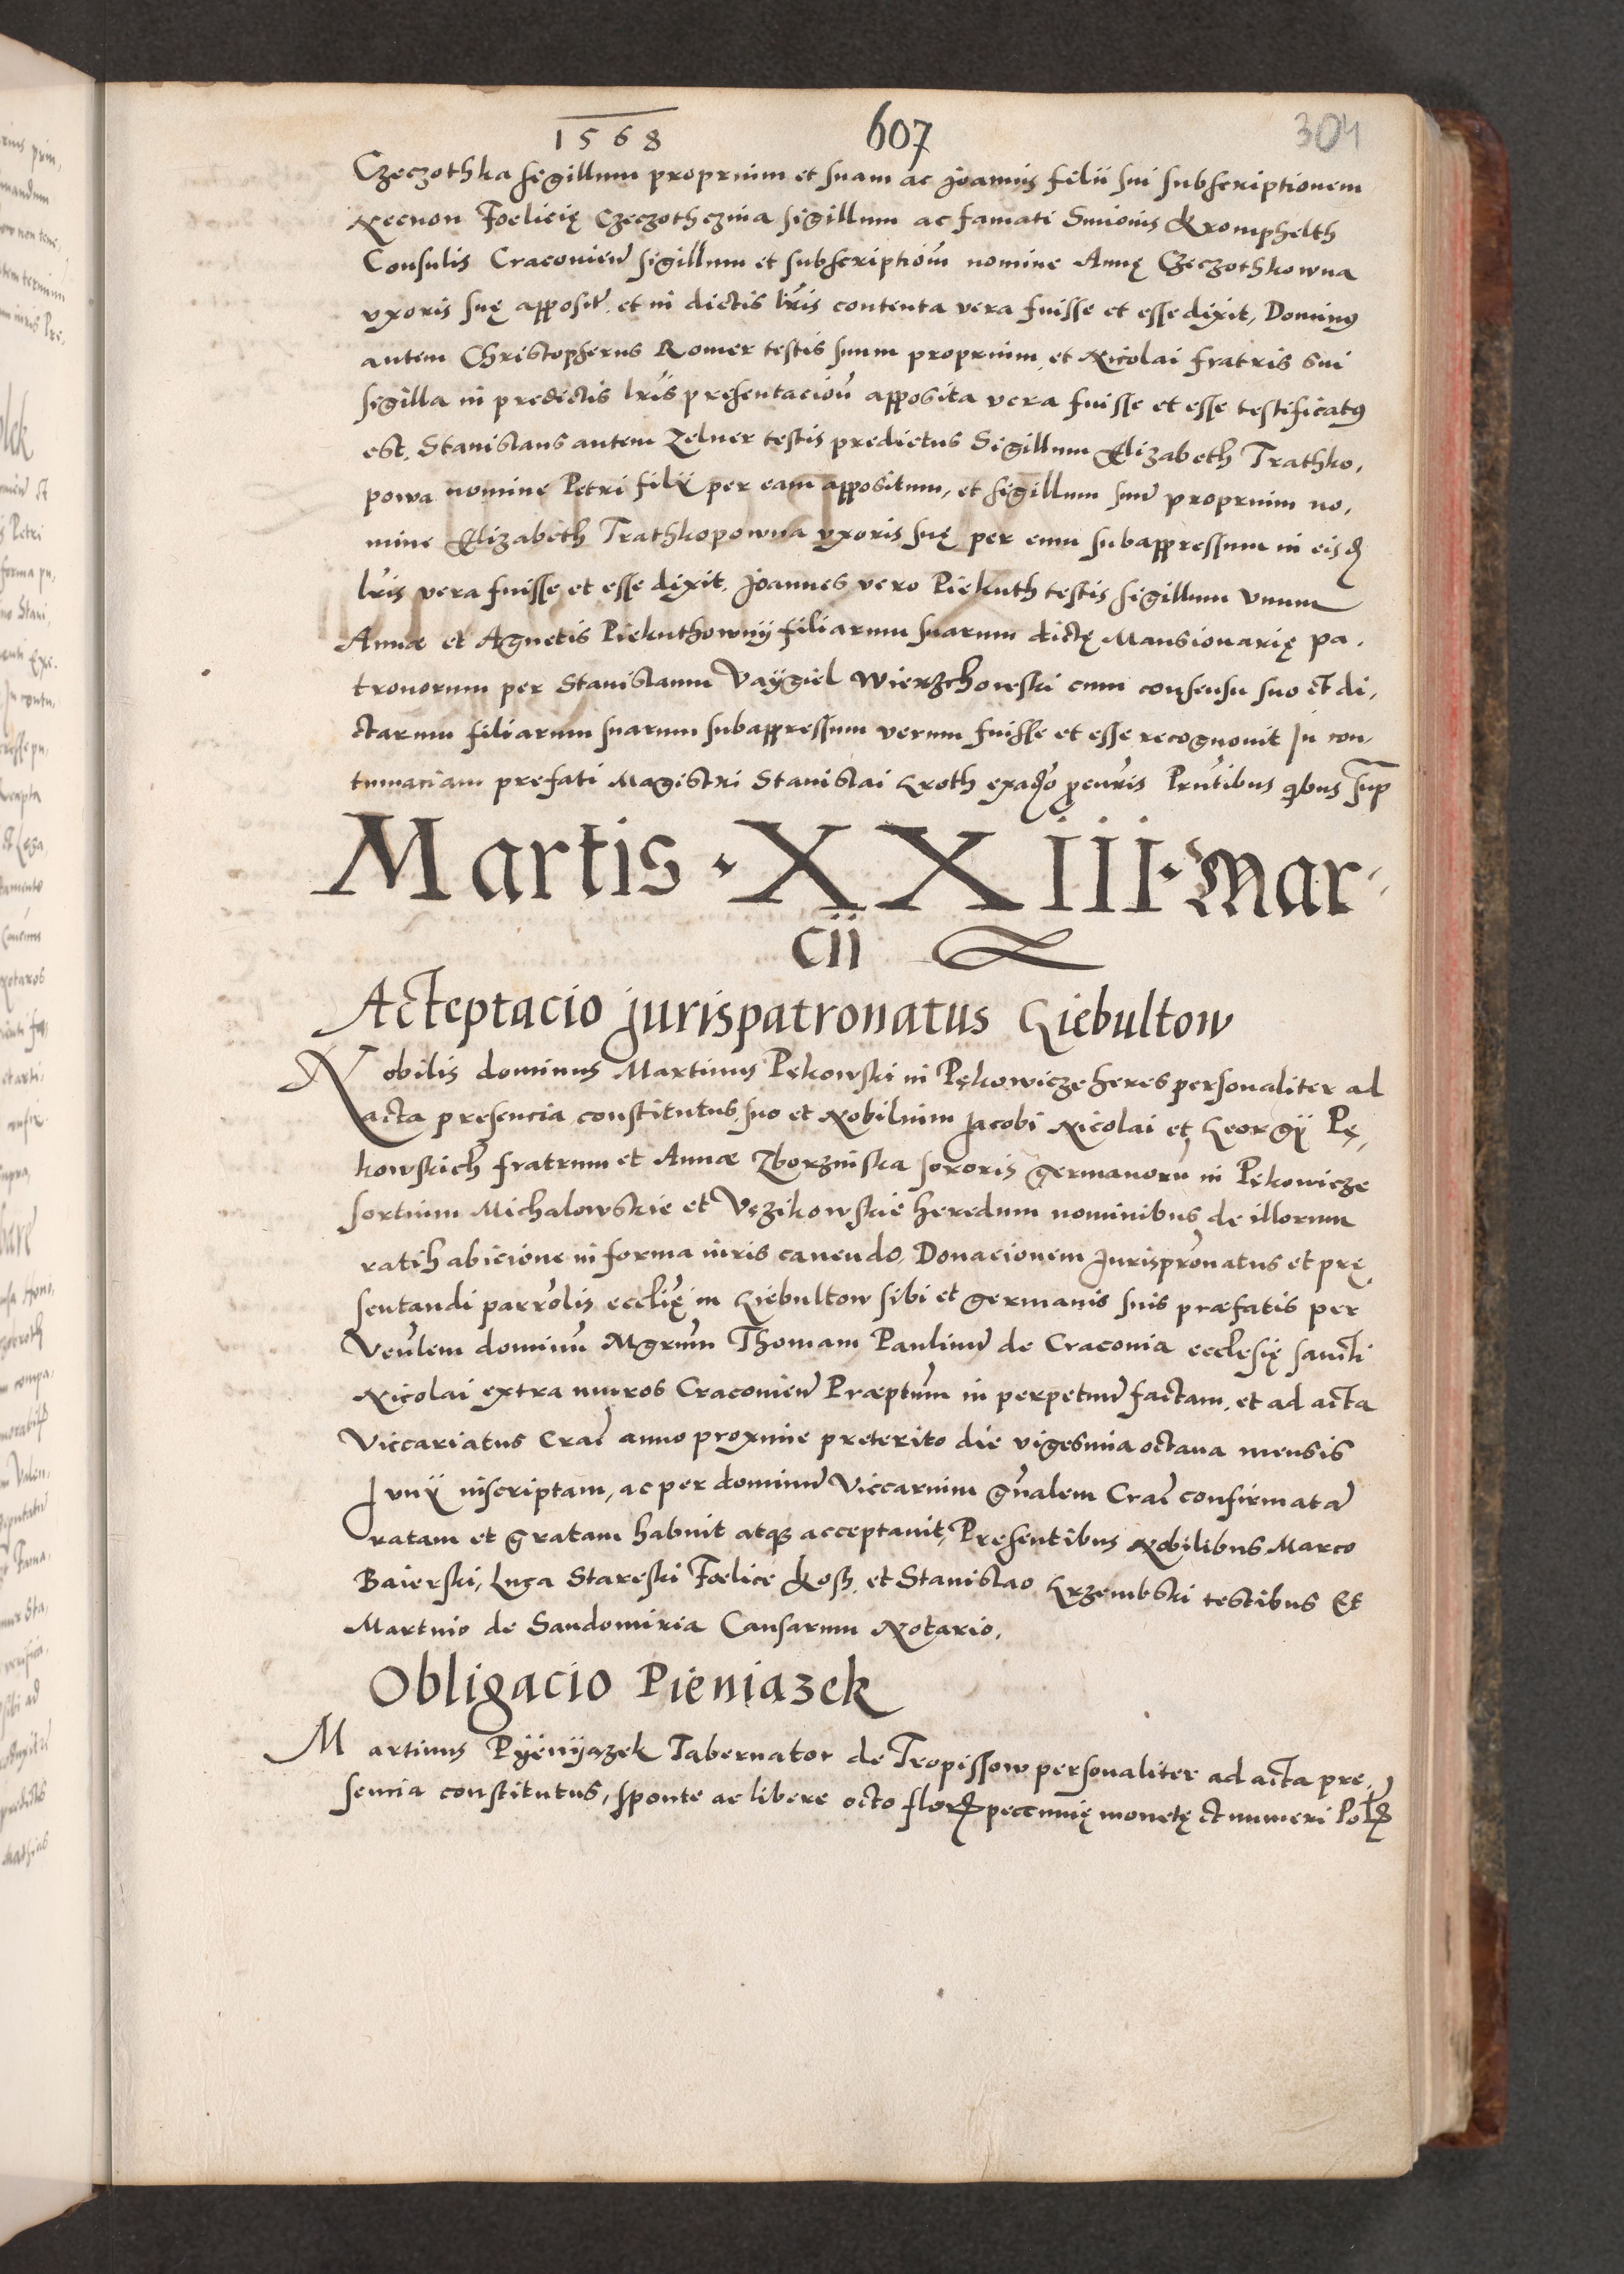 1568 607 304
Czeczothka sigillum proprium et suam ac Joannis filii sui subscriptionem
Necnon Foelicię Czeczothczina sigillum ac famati Simonis Kromphelth
Consulis Cracovien̄ sigillum et subscriptiōm nomine Annę Czeczothkowna
uxoris suę apposit̄, et in dictis lr̄is contenta vera fuisse et esse dixit, Dominꝰ
autem Christopherus Romer testis suum proprium, et Nicolai fratris sui
sigilla in predictis lr̄is presentacioū apposita vera fuisse et esse testificatꝰ
est, Stanislaus autem Zelner testis predictus Sigillum Elizabeth Trathko,
powa nomine Petri filÿ per eam appositum, et sigillum suū proprium no,
mine Elizabeth Trathkopowna uxoris suę per eum subappressum in eisđ
lr̄is vera fuisse et esse dixit, Joannes vero Piekuth testis sigillum unum
Annæ et Agnetis Piekuthownÿ filiarum suarum dictę Mansionarię pa,
tronorum per Stanislaum Vaÿgiel Wierzchowski cum consensu suo et di,
ctarum filiarum suarum subappressum verum fuisse et esse recognovit In con,
tumaciam prefati Magistri Stanislai Groth p̄ntibus qbus sup̄
Martis · XXIII · Mar-
cii
Acteptacio jurispatronatus Giebultow
Nobilis dominus Martinus Pękowski in Pękowicze heres personaliter ad
acta presencia constitutus, suo et Nobilium Jacobi Nicolai et Georgÿ Pę,
kowskich fratrum et Annæ Zborzinska sororis germanorū in Pękowicze
sortium Michalowskie et Vęzikowskie heredum nominibus de illorum
ratihabicione in forma iuris cavendo, Donacionem Jurisprōnatus et prę
sentandi parrōlis ecclię in Giebultow sibi et germanis suis præfatis per
Venlēm dominū Mgrūm Thomam Paulinū de Cracovia ecclesię sancti
Nicolai extra muros Cracovien̄ Præptūm in perpetuū factam, et ad acta
Viccariatus Crac̄ anno proxime preterito die vigesima octava mensis
Junÿ inscriptam, ac per dominū Viccarium gn̄alem Crac̄ confirmatā
ratam et gratam habuit atqꝫ acceptavit, Presentibus Nobilibus Marco
Baierski, Luca Stareski Foelice Kosz, et Stanislao Grzembski testibus Et
Martino de Sandomiria Causarum Notario,
Obligacio Pieniazek
Martinus Pÿenÿązek Tabernator de Tropissow personaliter ad acta pre,
sencia constitutus, sponte ac libere octo florꝝ peccunię monetę et numeri Polꝝ